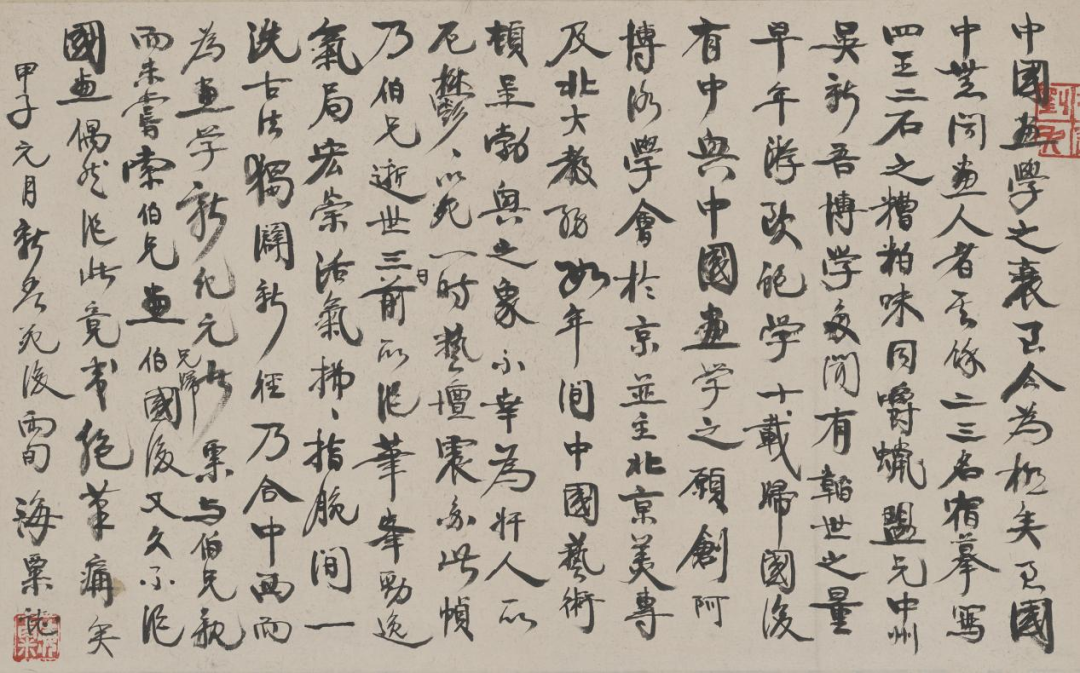 中國畫學之衰至今為極矣吾國
中世閒畫人者其餘二三名宿摹寫
四王二石之糟粕味同嚼蠟盟兄中州
吳新吾博学多聞有韜世之量
早年游欧范学十載歸國後
有中興中國畫学之願創阿
博洛學會於京並主北京美專
及北大教務数年间中國藝術
頓呈勃興之象不幸為奸人所
厄鬱鬱以死一时藝壇震哀此幀
乃伯兄逝世三日前所作筆峯勁逸
氣局宏崇活氣拂拂指腕间一
洗古法獨闢新徑乃合中西而
為畫学新纪元者粟与伯兄
而未嘗索伯兄畫伯兄歸國後又久不作
國畫偶然作此竟成绝筆痛矣
甲子元月新吾死後两旬海粟记